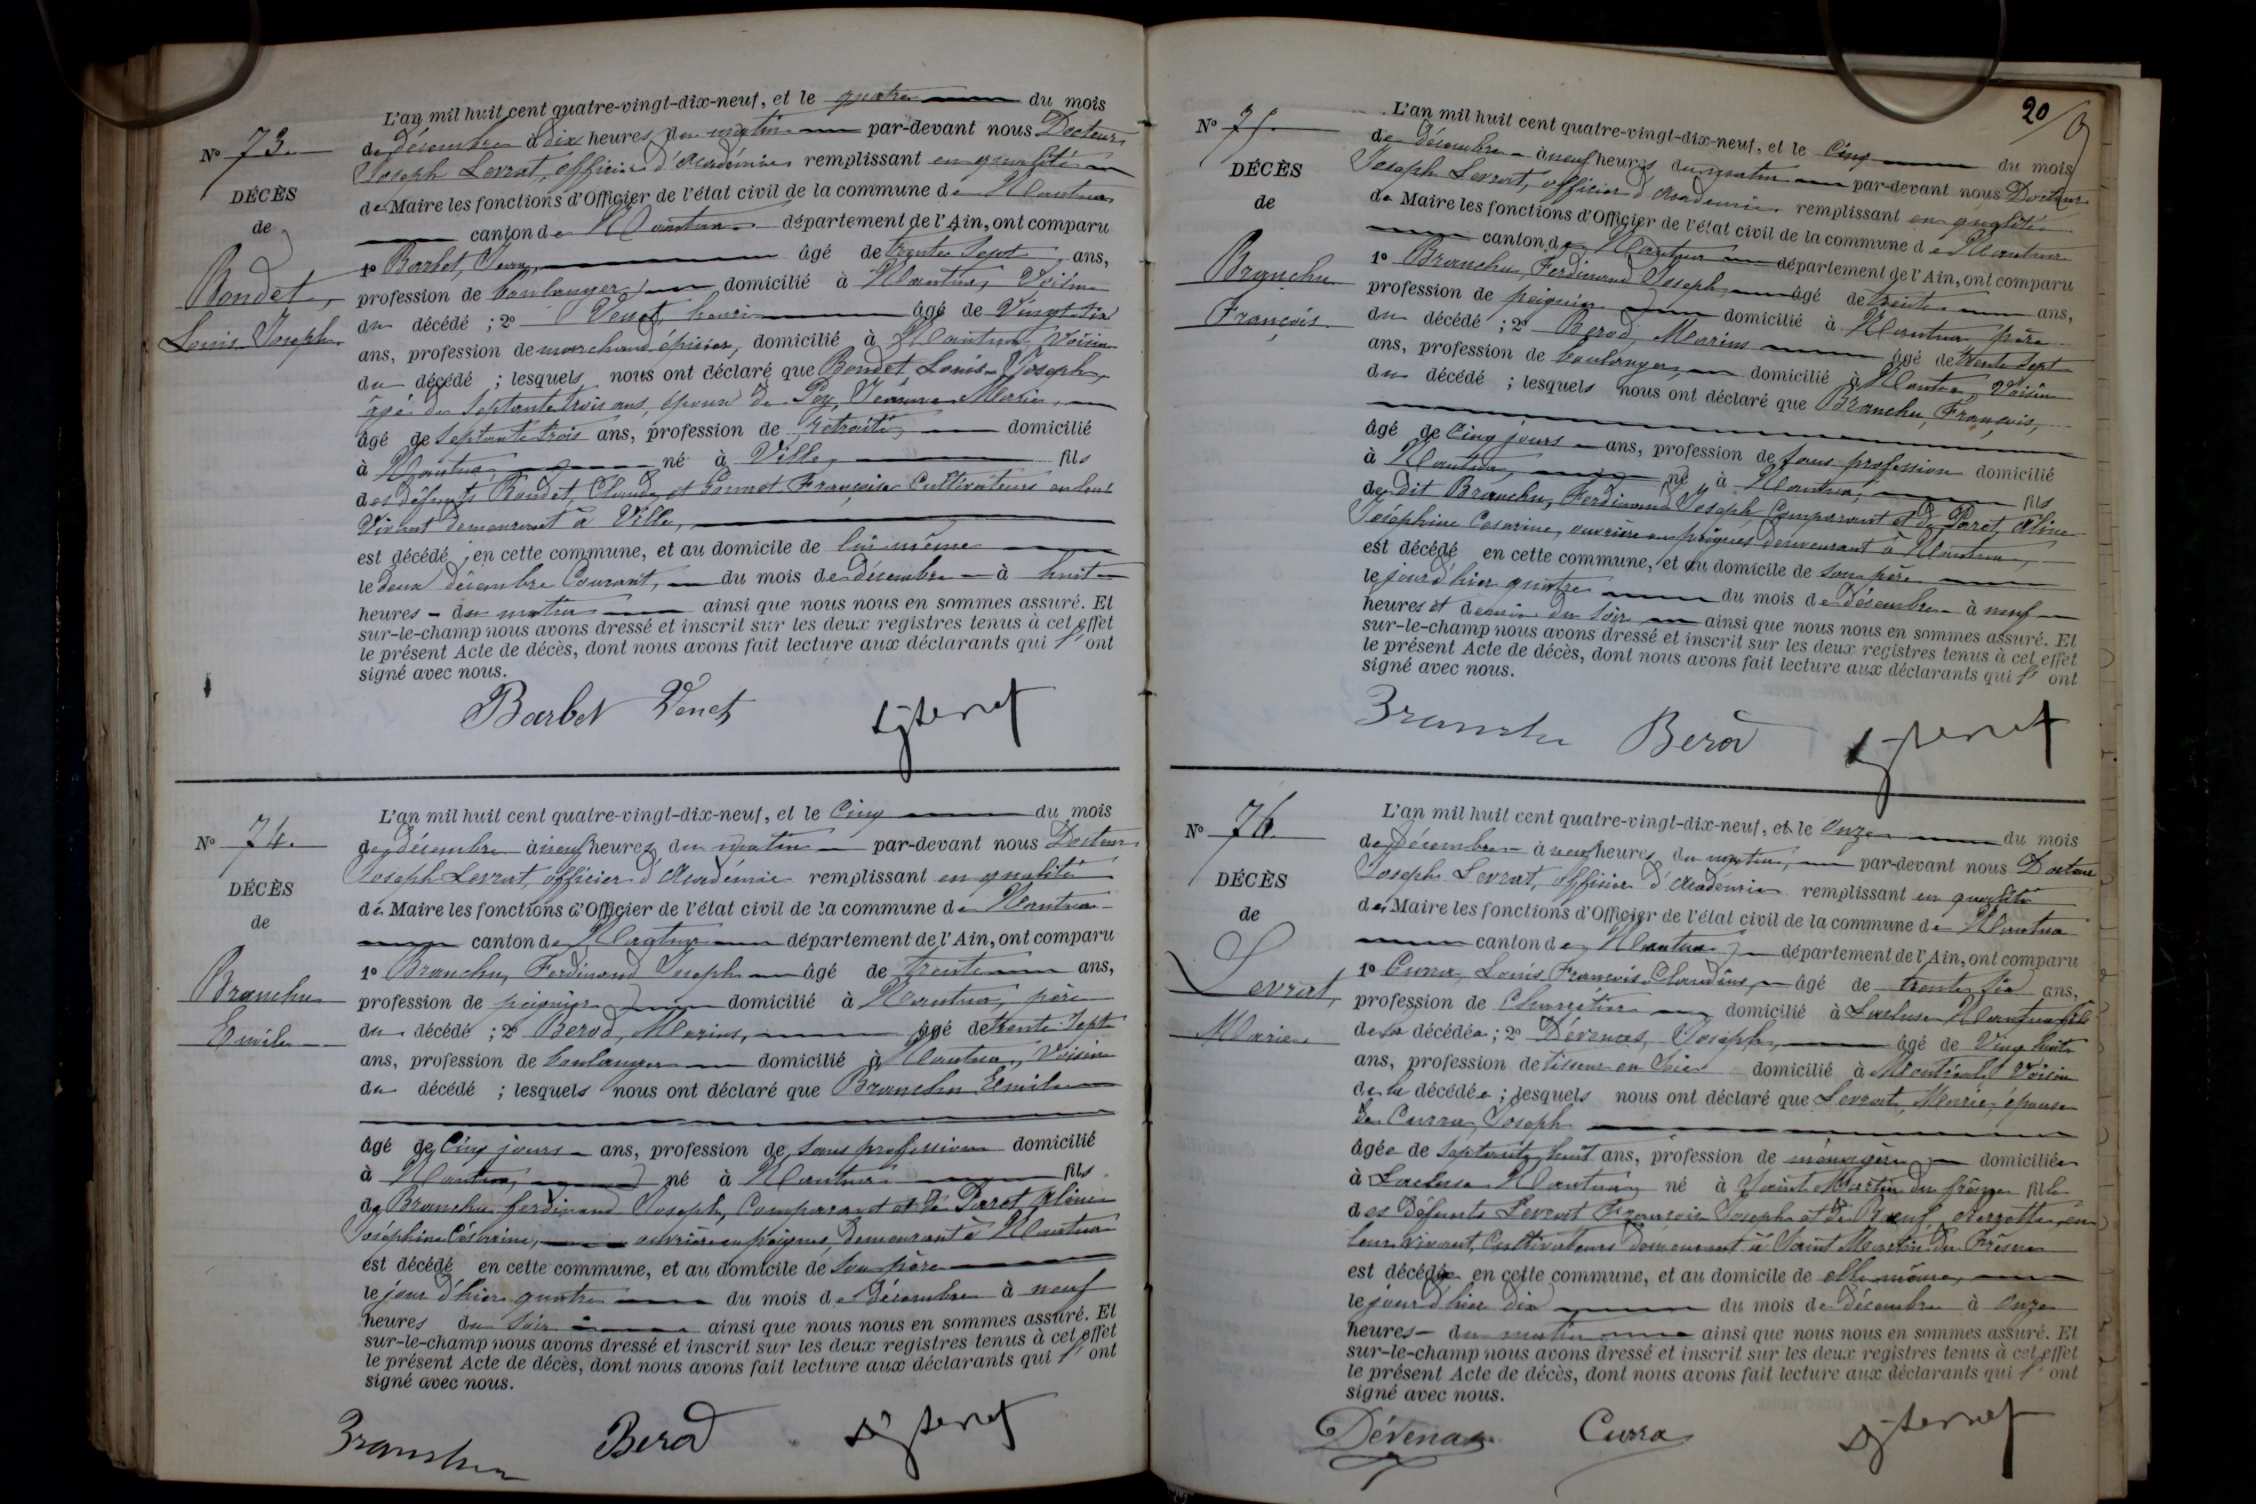 N° 73.
DÉCÈS
de
Bondet,
Louis Joseph
L'an mil huit cent quatre-vingt-dix-neuf, et le quatre du mois
de décembre à dix heures du matin par-devant nous Docteur
Joseph Levrat, officier d'Académie remplissant en qualité
de Maire les fonctions d'Officier de l'état civil de la commune de Nantua
canton de Nantua département de l'Ain, ont comparu
1° Barbet, Jean, âgé de trente sept ans,
profession de boulanger, domicilié à Nantua, Voisin
du décédé ; 2° Venet, henri âgé de Vingt six
ans, profession de marchand épicier, domicilié à Nantua, Voisin
du décédé ; lesquels nous ont déclaré que Bondet Louis-Joseph,
âgé de Septante trois ans, époux de Marie,
âgé de Septante trois ans, profession de Retraité, domicilié
à Nantua né à Ville, fils
des défunts Bondet, Claude, et Françoise Cultivateurs en leur
Vivant demeurant à Ville,
est décédé en cette commune, et au domicile de lui-même
le deux décembre Courant, du mois de décembre à huit
heures du matin ainsi que nous nous en sommes assuré. Et
sur-le-champ nous avons dressé et inscrit sur les deux registres tenus à cet effet
le présent Acte de décès, dont nous avons fait lecture aux déclarants qui l'ont
signé avec nous.
Barbet Venet
N° 74.
DÉCÈS
de
Branchu
Emile
L'an mil huit cent quatre-vingt-dix-neuf, et le Cinq du mois
de décembre à neuf heures du matin par-devant nous Docteur
Joseph Levrat, officier d'Académie remplissant en qualité
de Maire les fonctions d'Officier de l'état civil de la commune de Nantua
canton de Nantua département de l'Ain, ont comparu
1° Branchu, Ferdinand Joseph âgé de trente ans,
profession de peignier domicilié à Nantua, père
du décédé ; 2° Berod, Marius, âgé de trente Sept
ans, profession de boulanger domicilié à Nantua, Voisin
du décédé ; lesquels nous ont déclaré que Branchu Emile
âgé de Cinq jours ans, profession de Sans profession domicilié
à Nantua, né à Nantua fils
de Branchu ferdinand Joseph, Comparant et de Paret, Aline
Joséphine Césarine, ouvrière en peignes, demeurant à Nantua
est décédé en cette commune, et au domicile de Son père
le jour d'hier quatre du mois de décembre à neuf
heures du Soir ainsi que nous nous en sommes assuré. Et
sur-le-champ nous avons dressé et inscrit sur les deux registres tenus à cet effet
le présent Acte de décès, dont nous avons fait lecture aux déclarants qui l'ont
signé avec nous.
Branchu Berod
20
N° 75
DÉCÈS
de
Branchu
François
L'an mil huit cent quatre-vingt-dix-neuf, et le Cinq du mois
de décembre à neuf heures du matin par-devant nous Docteur
Joseph Levrat, officier d'Académie remplissant en qualité
de Maire les fonctions d'Officier de l'état civil de la commune de Nantua
canton de Nantua département de l'Ain, ont comparu
1° Branchu, Ferdinand Joseph, âgé de trente ans,
profession de peignier domicilié à Nantua père
du décédé ; 2° Berod, Marius âgé de trente Sept
ans, profession de boulanger, domicilié à Nantua, Voisin
du décédé ; lesquels nous ont déclaré que Branchu, François,
âgé de Cinq jours ans, profession de sans profession domicilié
à Nantua, né à Nantua, fils
de dit Branchu, Ferdinand Joseph Comparant et de Paret, Aline
Joséphine Césarine, ouvrière en peignes demeurant à Nantua,
est décédé en cette commune, et au domicile de son père
le jour d'hier quatre du mois de décembre à neuf
heures et demie du Soir ainsi que nous nous en sommes assuré. Et
sur-le-champ nous avons dressé et inscrit sur les deux registres tenus à cet effet
le présent Acte de décès, dont nous avons fait lecture aux déclarants qui l'ont
signé avec nous.
Branchu Berod
N° 76.
DÉCÈS
de
Levrat,
Marie
L'an mil huit cent quatre-vingt-dix-neuf, et le onze du mois
de Décembre à neuf heures du matin, par-devant nous Docteur
Joseph Levrat, officier d'Académie remplissant en qualité
de Maire les fonctions d'Officier de l'état civil de la commune de Nantua
canton de Nantua département de l'Ain, ont comparu
1° Curra, Louis François Claudius, âgé de trente six ans,
profession de domicilié à Lacluse Nantua fils
de la décédée ; 2° Dévenas, Joseph, âgé de Vingt huit
ans, profession de tisseur en Soie domicilié à Montréal, Voisin
de la décédée ; lesquels nous ont déclaré que Levrat, Marie, épouse
de Curra, Joseph
âgée de Septante huit ans, profession de ménagère domiciliée
à Lacluse Nantua né à Saint Martin du frêne fille
des défunts Levrat François Joseph et de Pierrette, en
leur vivant, Cultivateurs demeurant à Saint Martin du Frêne
est décédée en cette commune, et au domicile de elle même,
le jour d'hier dix du mois de décembre à onze
heures du matin ainsi que nous nous en sommes assuré. Et
sur-le-champ nous avons dressé et inscrit sur les deux registres tenus à cet effet
le présent Acte de décès, dont nous avons fait lecture aux déclarants qui l'ont
signé avec nous.
Dévenas Curra